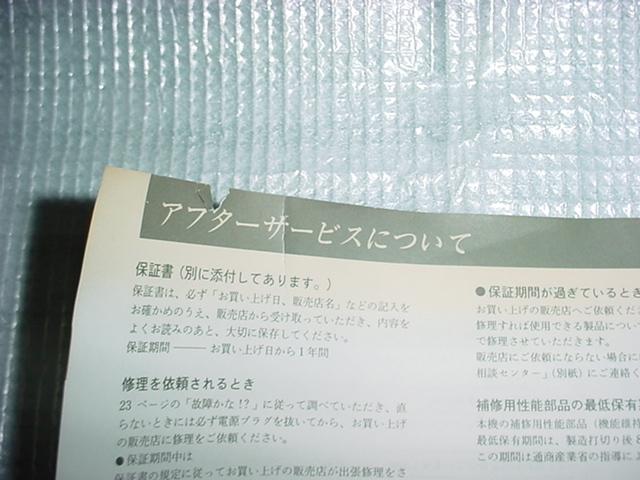 アフターサービスについて
保証書(別に添付してあります。)
保証書は、必ず「お買い上げ日、販売店名」などの記入を
お確かめのうえ、販売店から受け取っていただき、内容を
よくお読みのあと、大切に保存してください。
保証期間 ―― お買い上げ日から1年間
修理を依頼されるとき
23 ページの「故障かな!?」に従って調べていただき、直
らないときには必ず電源プラグを抜いてから、お買い上げ
の販売店に修理をご依頼ください。
●保証期間中は
保証書の規定に従ってお買い上げの販売店が出張修理をさ
●保証期間が過ぎているとき
お買い上げの販売店へご依頼くだ
修理すれば使用できる製品につい
で修理させていただきます。
販売店にご依頼にならない場合に
相談センター」(別紙)にご連絡く
補修用性能部品の最低保有
本機の補修用性能部品(機能維持
最低保有期間は、製造打切り後
この期間は通商産業省の指導によ